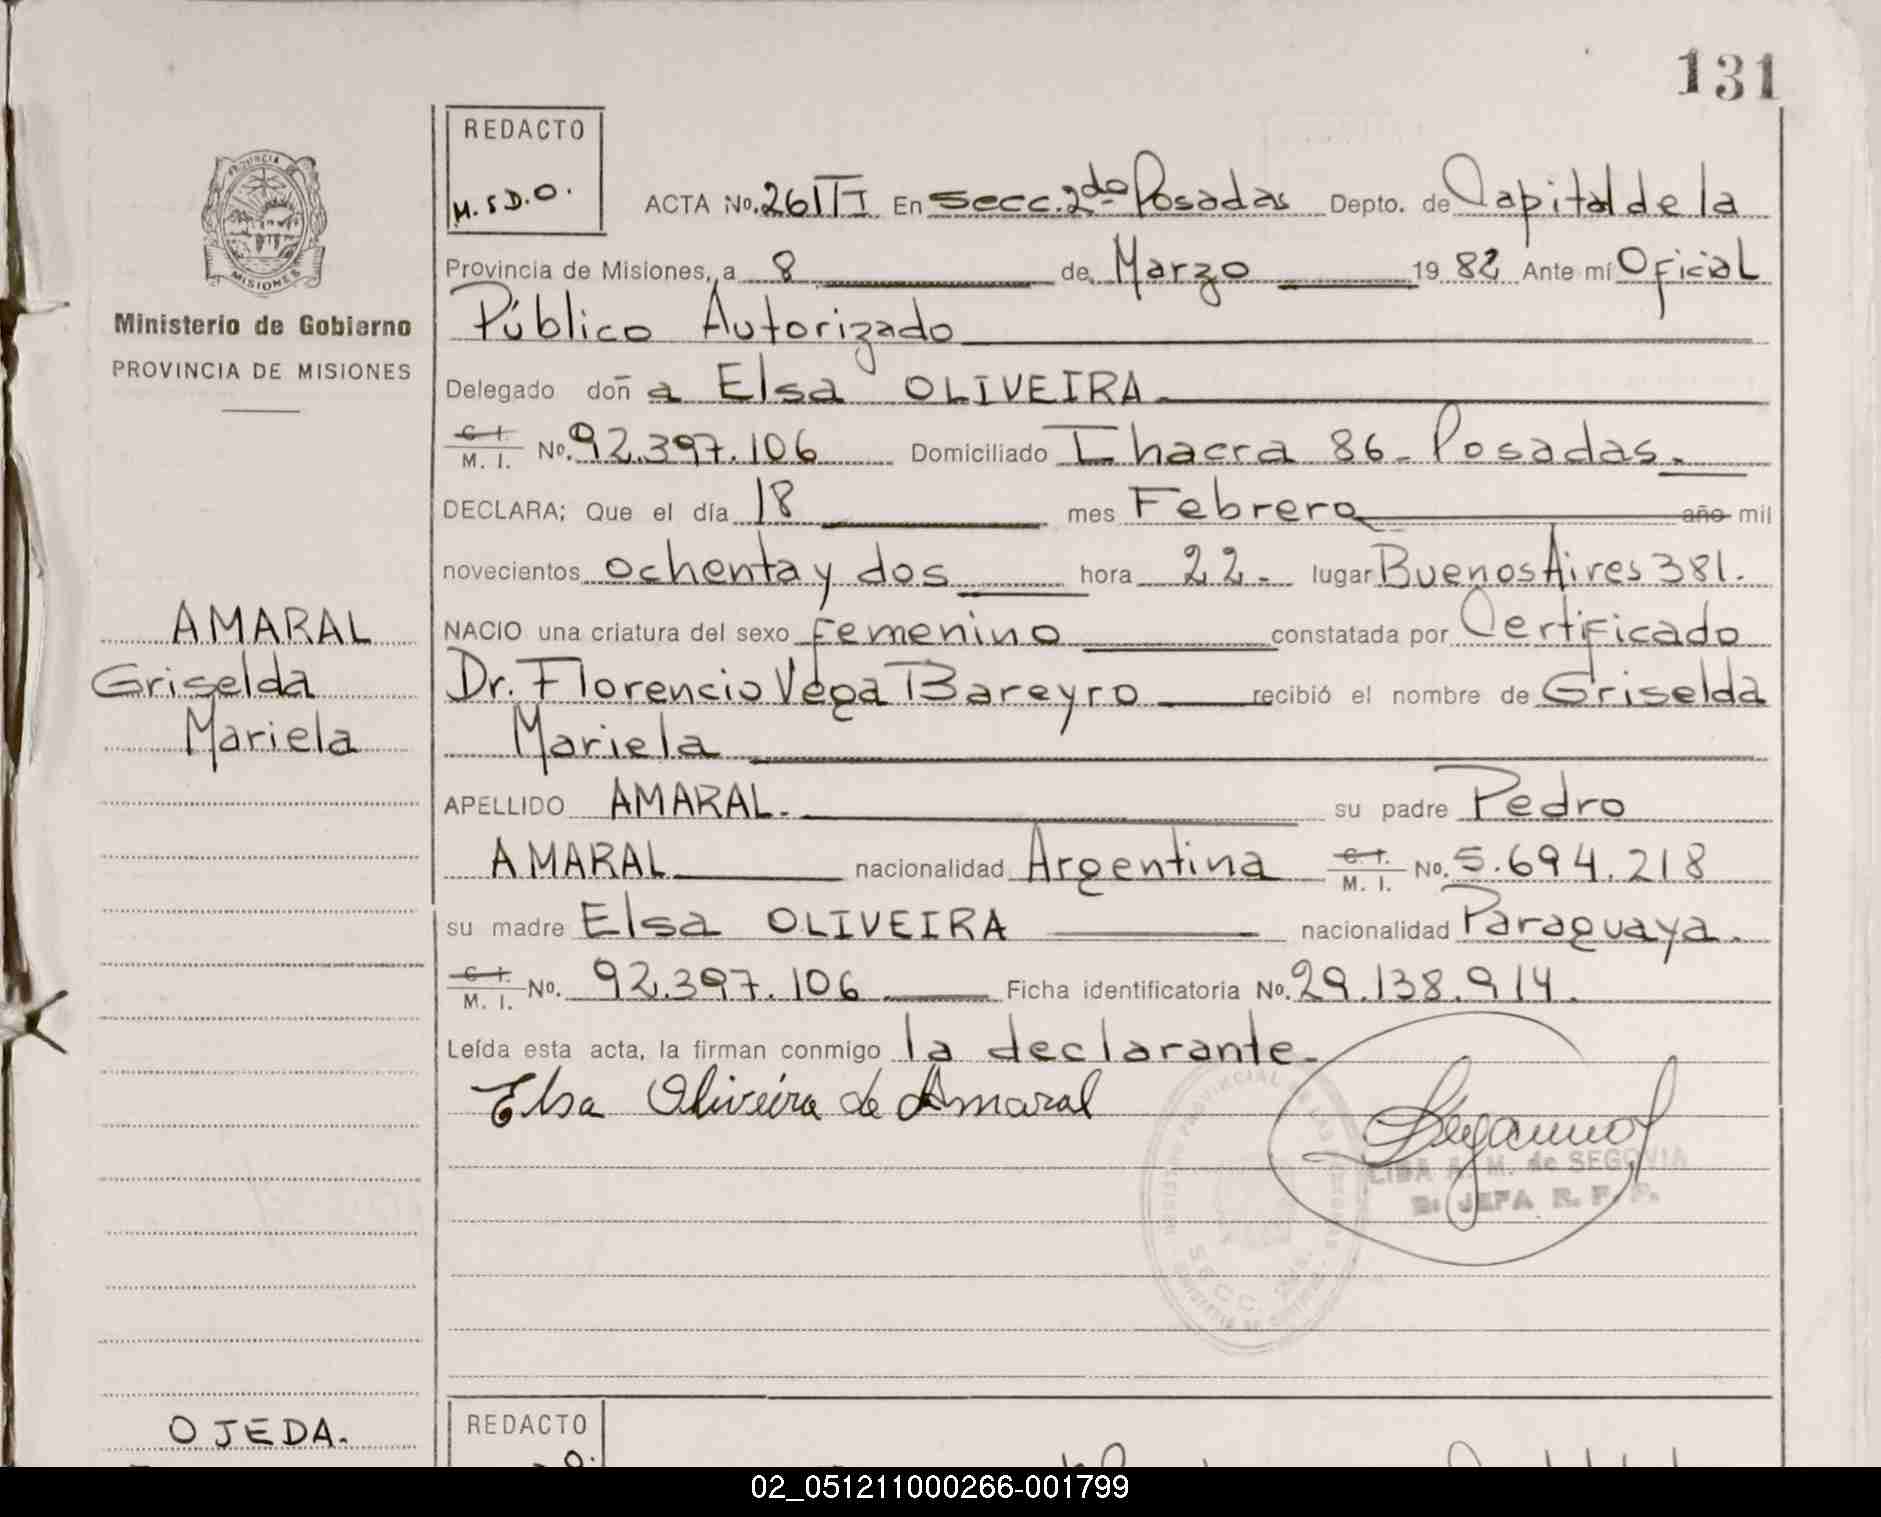 131
REDACTO
M. S D. O.
PROVINCIA
MISIONES
Ministerio de Gobierno
PROVINCIA DE MISIONES
ACTA No. 261 TI En Secc. 2do Posadas Depto. de Capital de la
Provincia de Misiones, a 8 de Marzo 19 82 Ante mí Oficial
Público Autorizado
Delegado doñ a Elsa OLIVEIRA
C. I. M. I. No. 92.397.106 Domiciliado Chacra 86 - Posadas.
DECLARA; Que el día 18 mes Febrero año mil
novecientos ochenta y dos hora 22. lugar Buenos Aires 381.
AMARAL
Griselda
Mariela
NACIO una criatura del sexo femenino constatada por Certificado
Dr. Florencio Vega Bareyro recibió el nombre de Griselda
Mariela
APELLIDO AMARAL. su padre Pedro
AMARAL nacionalidad Argentina C. I. M. I. No. 5.694.218
su madre Elsa OLIVEIRA nacionalidad Paraguaya.
C. I. M. I. No. 92.397.106 Ficha identificatoria No. 29.138.914.
Leída esta acta, la firman conmigo la declarante.
Elsa Oliveira de Amaral
A. M. de SEGOVIA
JEFA R. P. P.
SECC. 2da.
OJEDA.
REDACTO
02_051211000266-001799